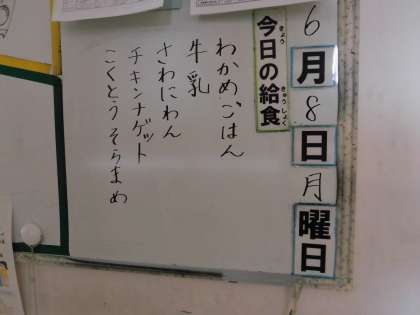 6月8日月曜日
今日の給食
きょう
きゅうしょく
わかめごはん
牛乳
さわにわん
チキンナゲット
こくとうそらまめ